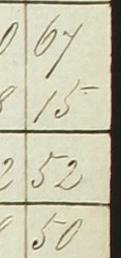 0 67
8 15
2 52
50